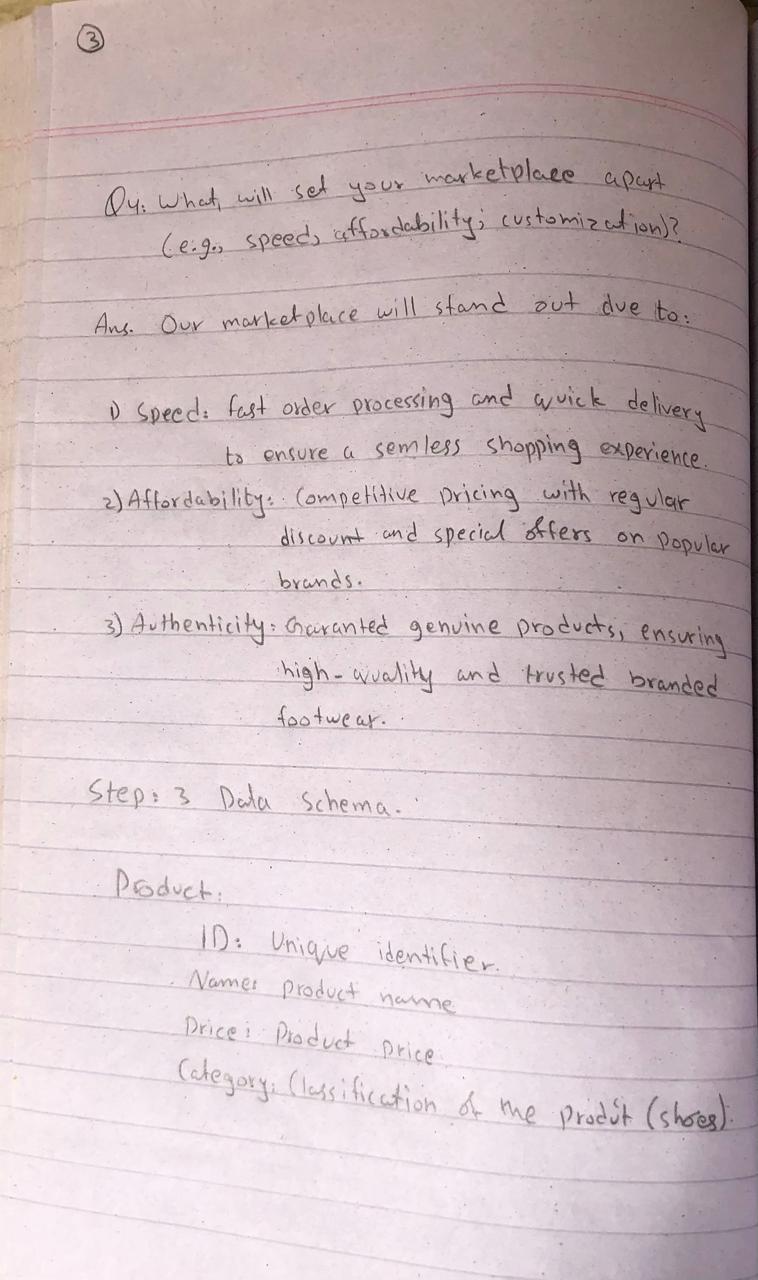 3
Q4: What will set your marketplace apart
(e.g., speed, affordability, customization)?
Ans. Our marketplace will stand out due to:
1) Speed: fast order processing and quick delivery
to ensure a semless shopping experience.
2) Affordability: Competitive pricing with regular
discount and special offers on popular
brands.
3) Authenticity: Garanted genuine products, ensuring
high-quality and trusted branded
footwear.
Step: 3 Data Schema.
Product:
ID: Unique identifier.
Name: product name
Price: Product price
Category: Classification of the produt (shoes).